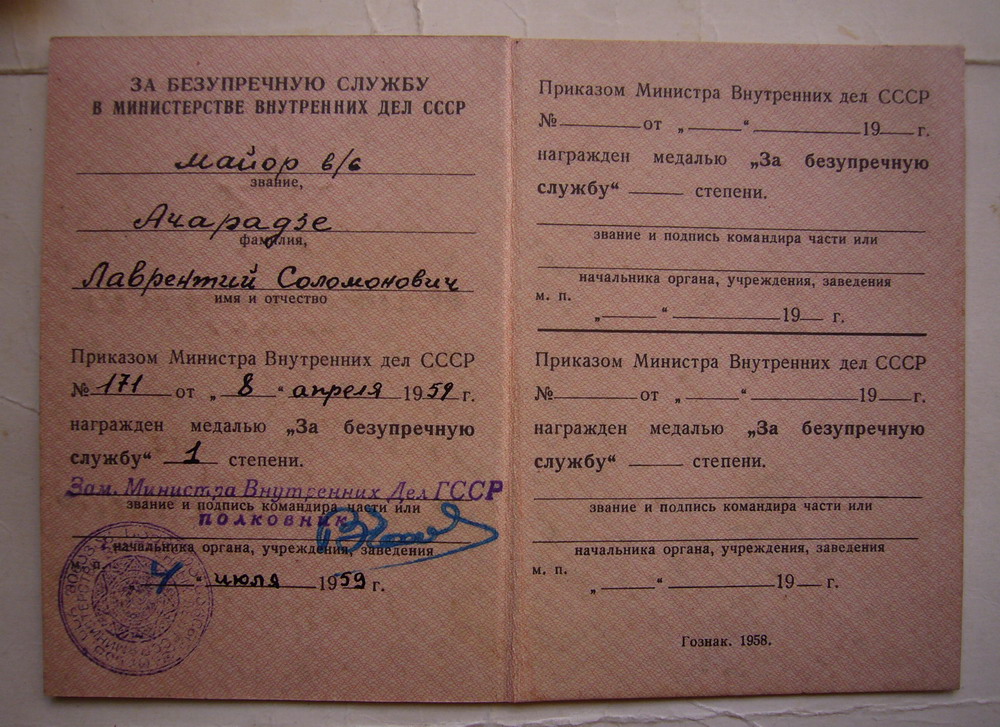 ЗА БЕЗУПРЕЧНУЮ СЛУЖБУ
В МИНИСТЕРСТВЕ ВНУТРЕННИХ ДЕЛ СССР
майор в/с
звание,
Ачарадзе
фамилия,
Лаврентий Соломонович
имя и отчество
Приказом Министра Внутренних дел СССР
№ 171 от „ 8 “ апреля 1959 г.
награжден медалью „За безупречную
службу“ 1 степени.
Зам. Министра Внутренних Дел ГССР
звание и подпись командира части или
полковник
начальника органа, учреждения, заведения
м. п.
„ 4 “ июля 1959 г.
Приказом Министра Внутренних дел СССР
№ от „ “ 19 г.
награжден медалью „За безупречную
службу“ степени.
звание и подпись командира части или
начальника органа, учреждения, заведения
м. п.
„ “ 19 г.
Приказом Министра Внутренних дел СССР
№ от „ “ 19 г.
награжден медалью „За безупречную
службу“ степени.
звание и подпись командира части или
начальника органа, учреждения, заведения
м. п.
„ “ 19 г.
Гознак. 1958.